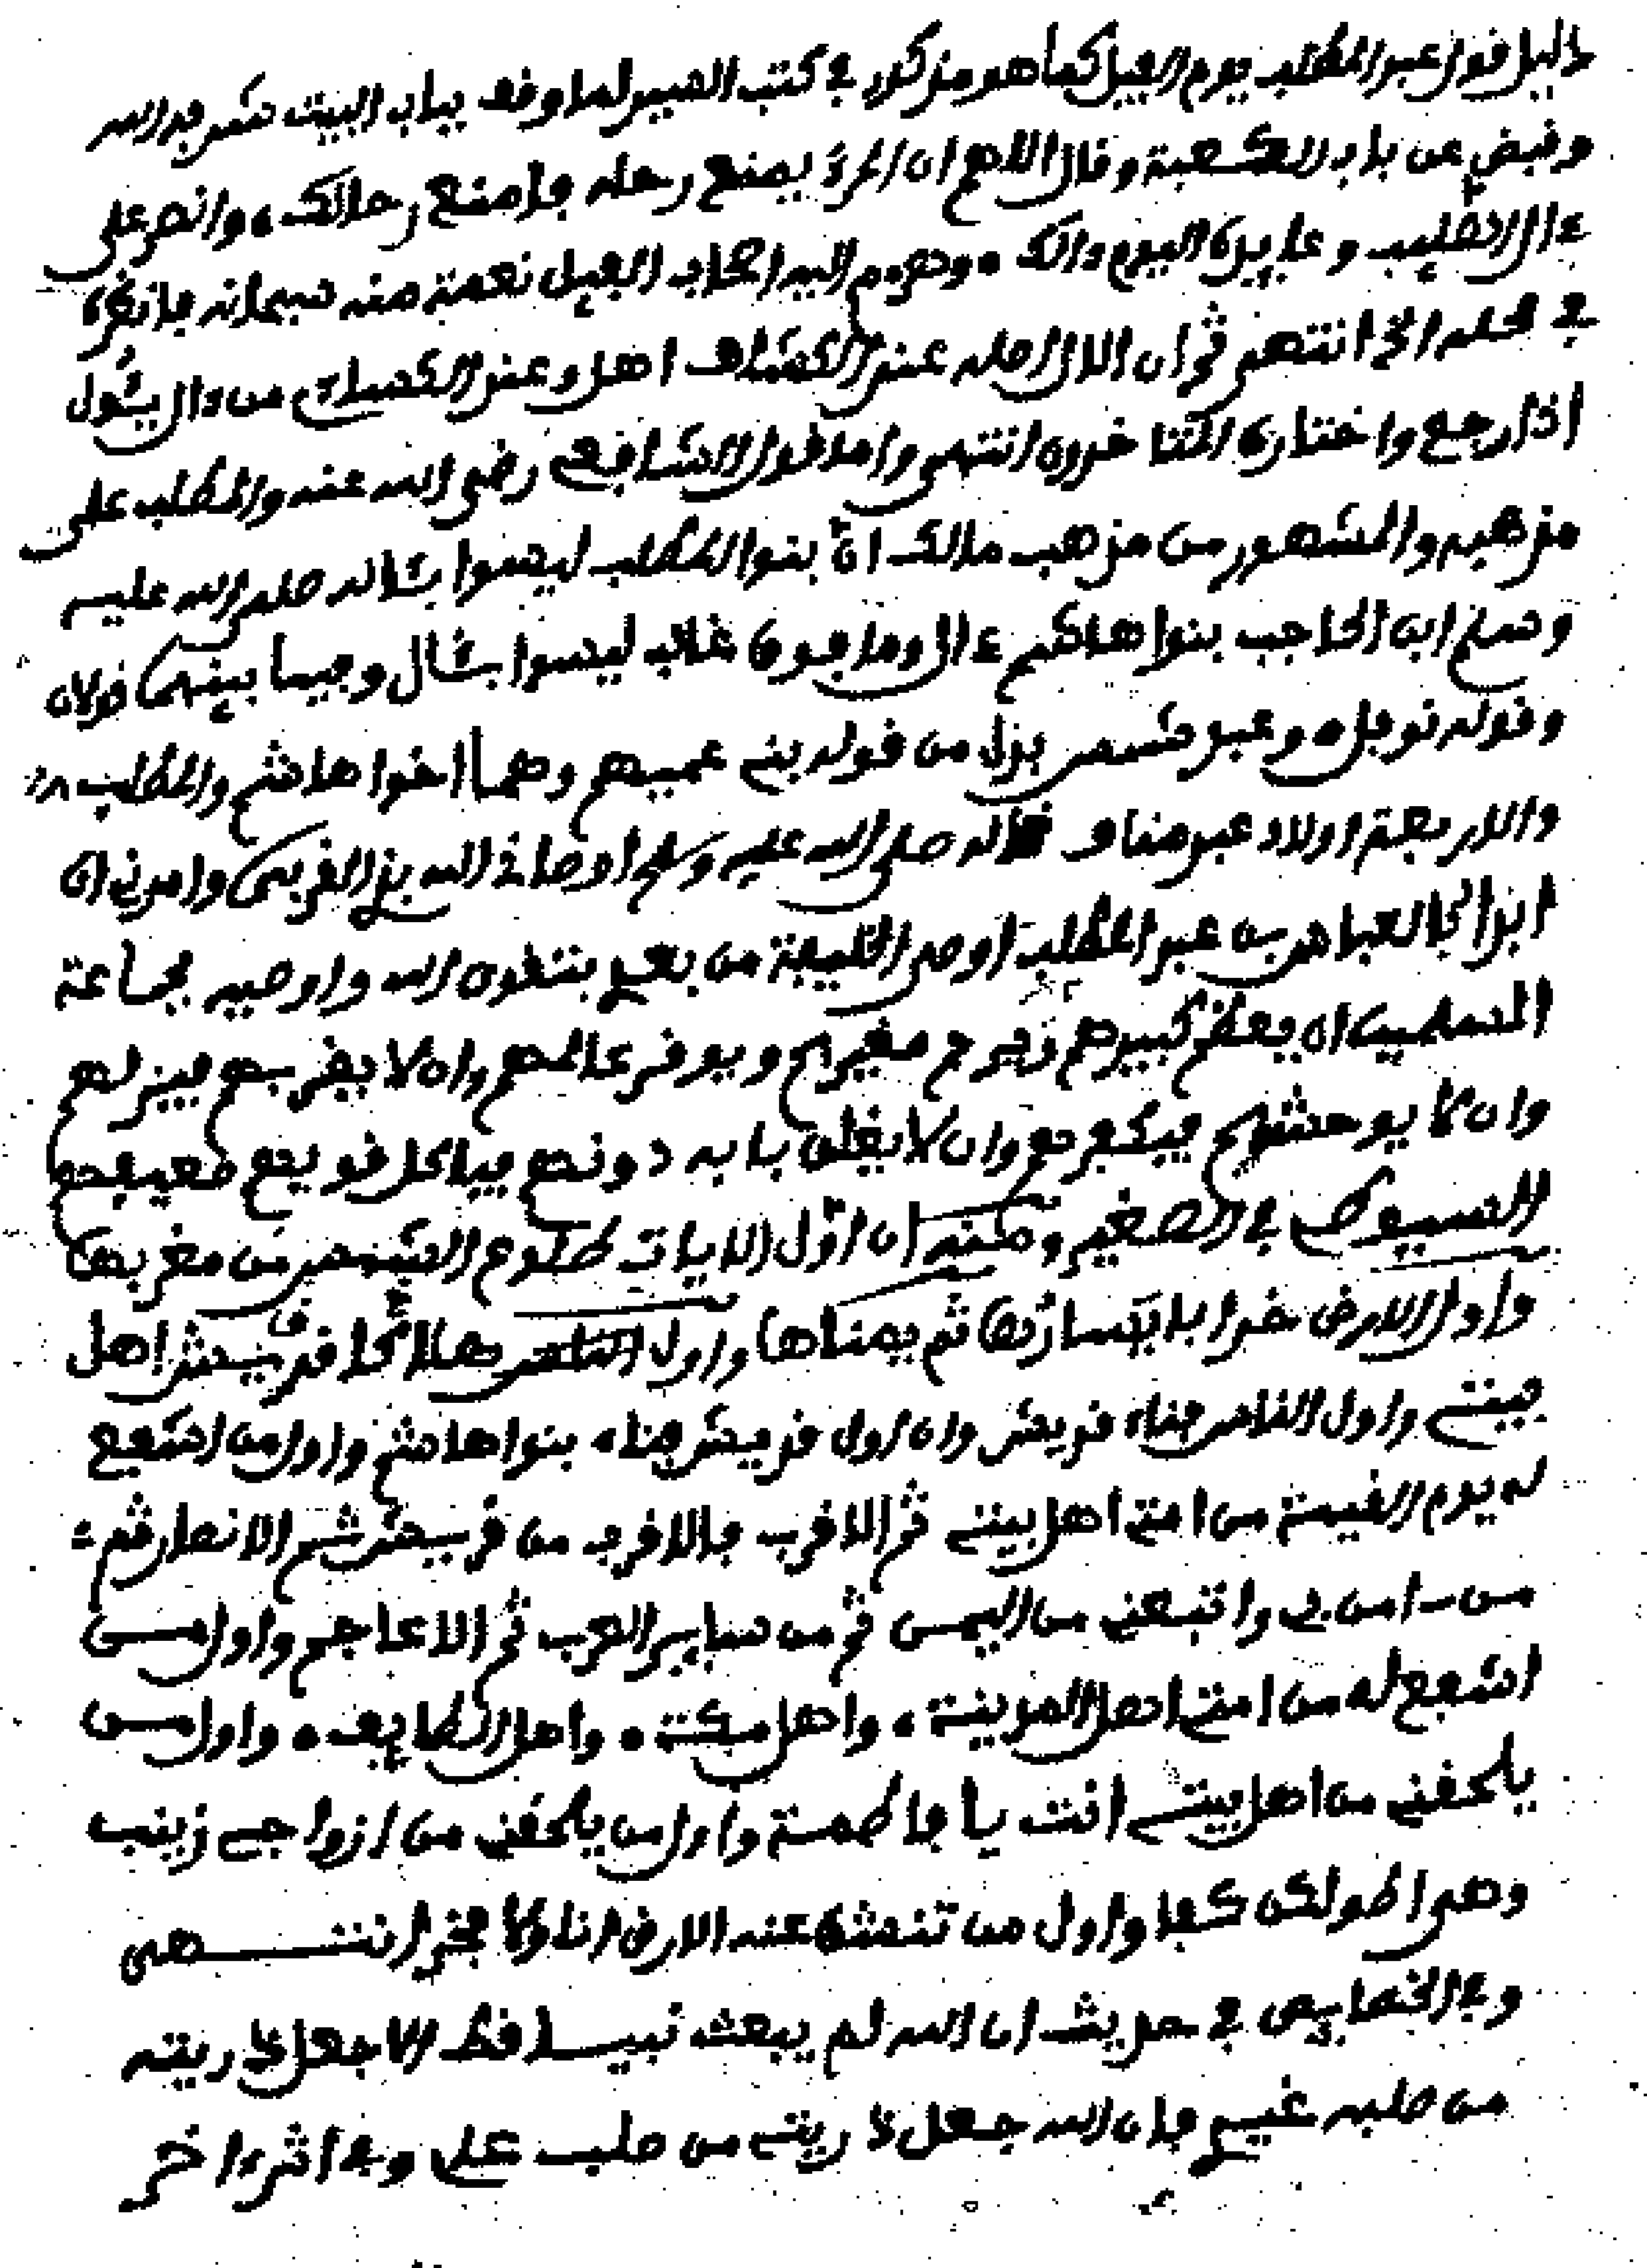 دليل قول عبد المطلب يوم الفيل كما هو مذكور في كتب السير لما وقف بباب البيت شرفه الله
وقبض عن باب الكعبة وقال اللهم ان المرء يمنع رحله فامنع رحالك وانصر على
ءال الصليب وعابديه اليوم ءالك وهزم اليه اصحاب الفيل نعمة منه سبحانه فانظره
في محله الخ انتهى ثم ان الال اصله عند الكشاف اهل وعند الكسائي من ءال يئول
اذا رجع واختاره المتاخرون انتهى واما قول الشافعي رضي الله عنه والمطلب على
مذهبه والمشهور من مذهب مالك ان بنوا المطلب ليسوا بئاله صلى الله عليه
وسلم ابن الحاجب بنوا هاشم ءال وما فوق غالب ليسوا بئال وفيما بينهما قولان
وقوله نوفل وعبد شمس بدل من قوله بني عميهم وهما اخوا هاشم والمطلب
والاربعة اولاد عبد مناف صلى الله عليه وسلم اوصاني الله بذي القربى وامرني ان
ابدا بالعباس بن عبد المطلب اوصي الخليفة من بعدي بتقوى الله واوصيه بجماعة
المسلمين ان يعظم كبيرهم ويرحم صغيرهم ويوقر عالمهم وان لا يضر بهم فيذلهم
وان لا يوحشهم فيكفرهم وان لا يغلق بابه دونهم فياكل قويهم ضعيفهم
السيوطي في الصغير ومنه ان اول الايات طلوع الشمس من مغربها
واول الارض خرابا يسارها ثم يمناها واول الناس هلاكا قريش اهل
بيتي واول الناس فناء قريش وان اول قريش فناء بنوا هاشم واول من اشفع
له يوم القيمة من امتي اهل بيتي ثم الاقرب فالاقرب من قريش ثم الانصار ثم
من ءامن بي واتبعني من اليمن ثم من ساير العرب ثم الاعاجم واول من
اشفع له من امتي اهل المدينة واهل مكة واهل الطايف واول من
يلحقني من اهل بيتي انت يا فاطمة واول من يلحقني من ازواجي زينب
وهي اطولكن كفا واول من تنشق عنه الارض انا ولا فخر انتهى
وفي الخصايص في حديث ان الله لم يبعث نبيا قط الا جعل ذريته
من صلبه غيري فان الله جعل ذريتي من صلب علي وفي اثر ءاخر